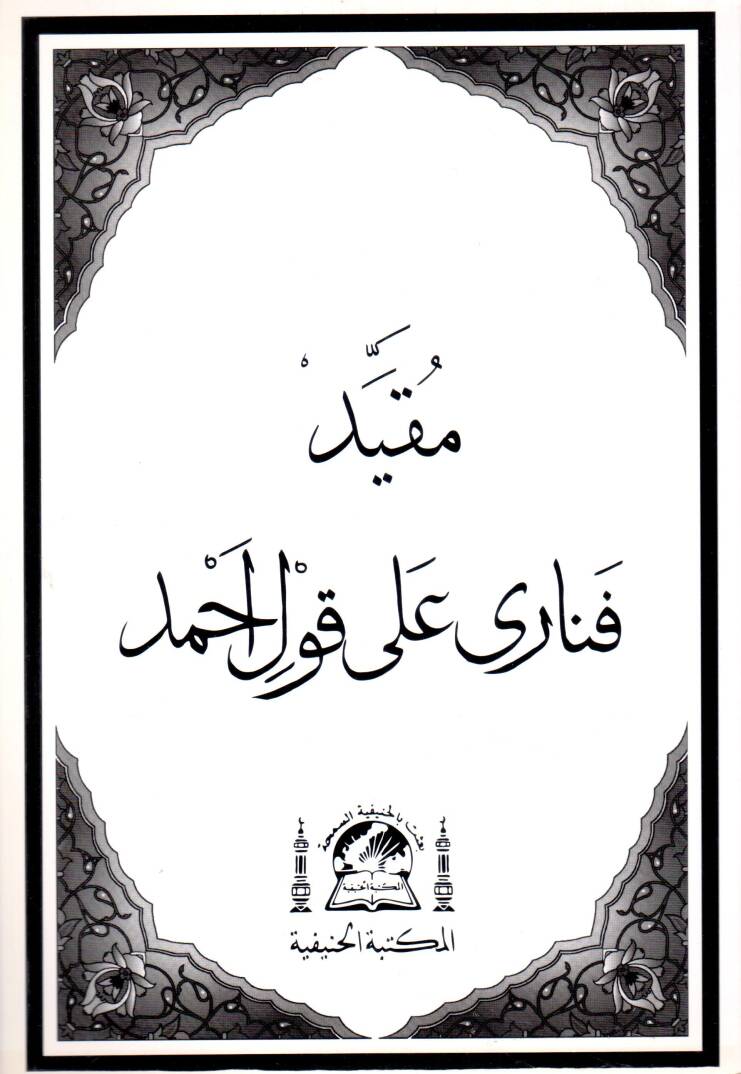 مُقَيَّدْ
فَنارى عَلى قَوْلِ اَحْمد
بعثت بالحنيفية السمحة
المكتبة الحنيفية
المكتبة الحنيفية